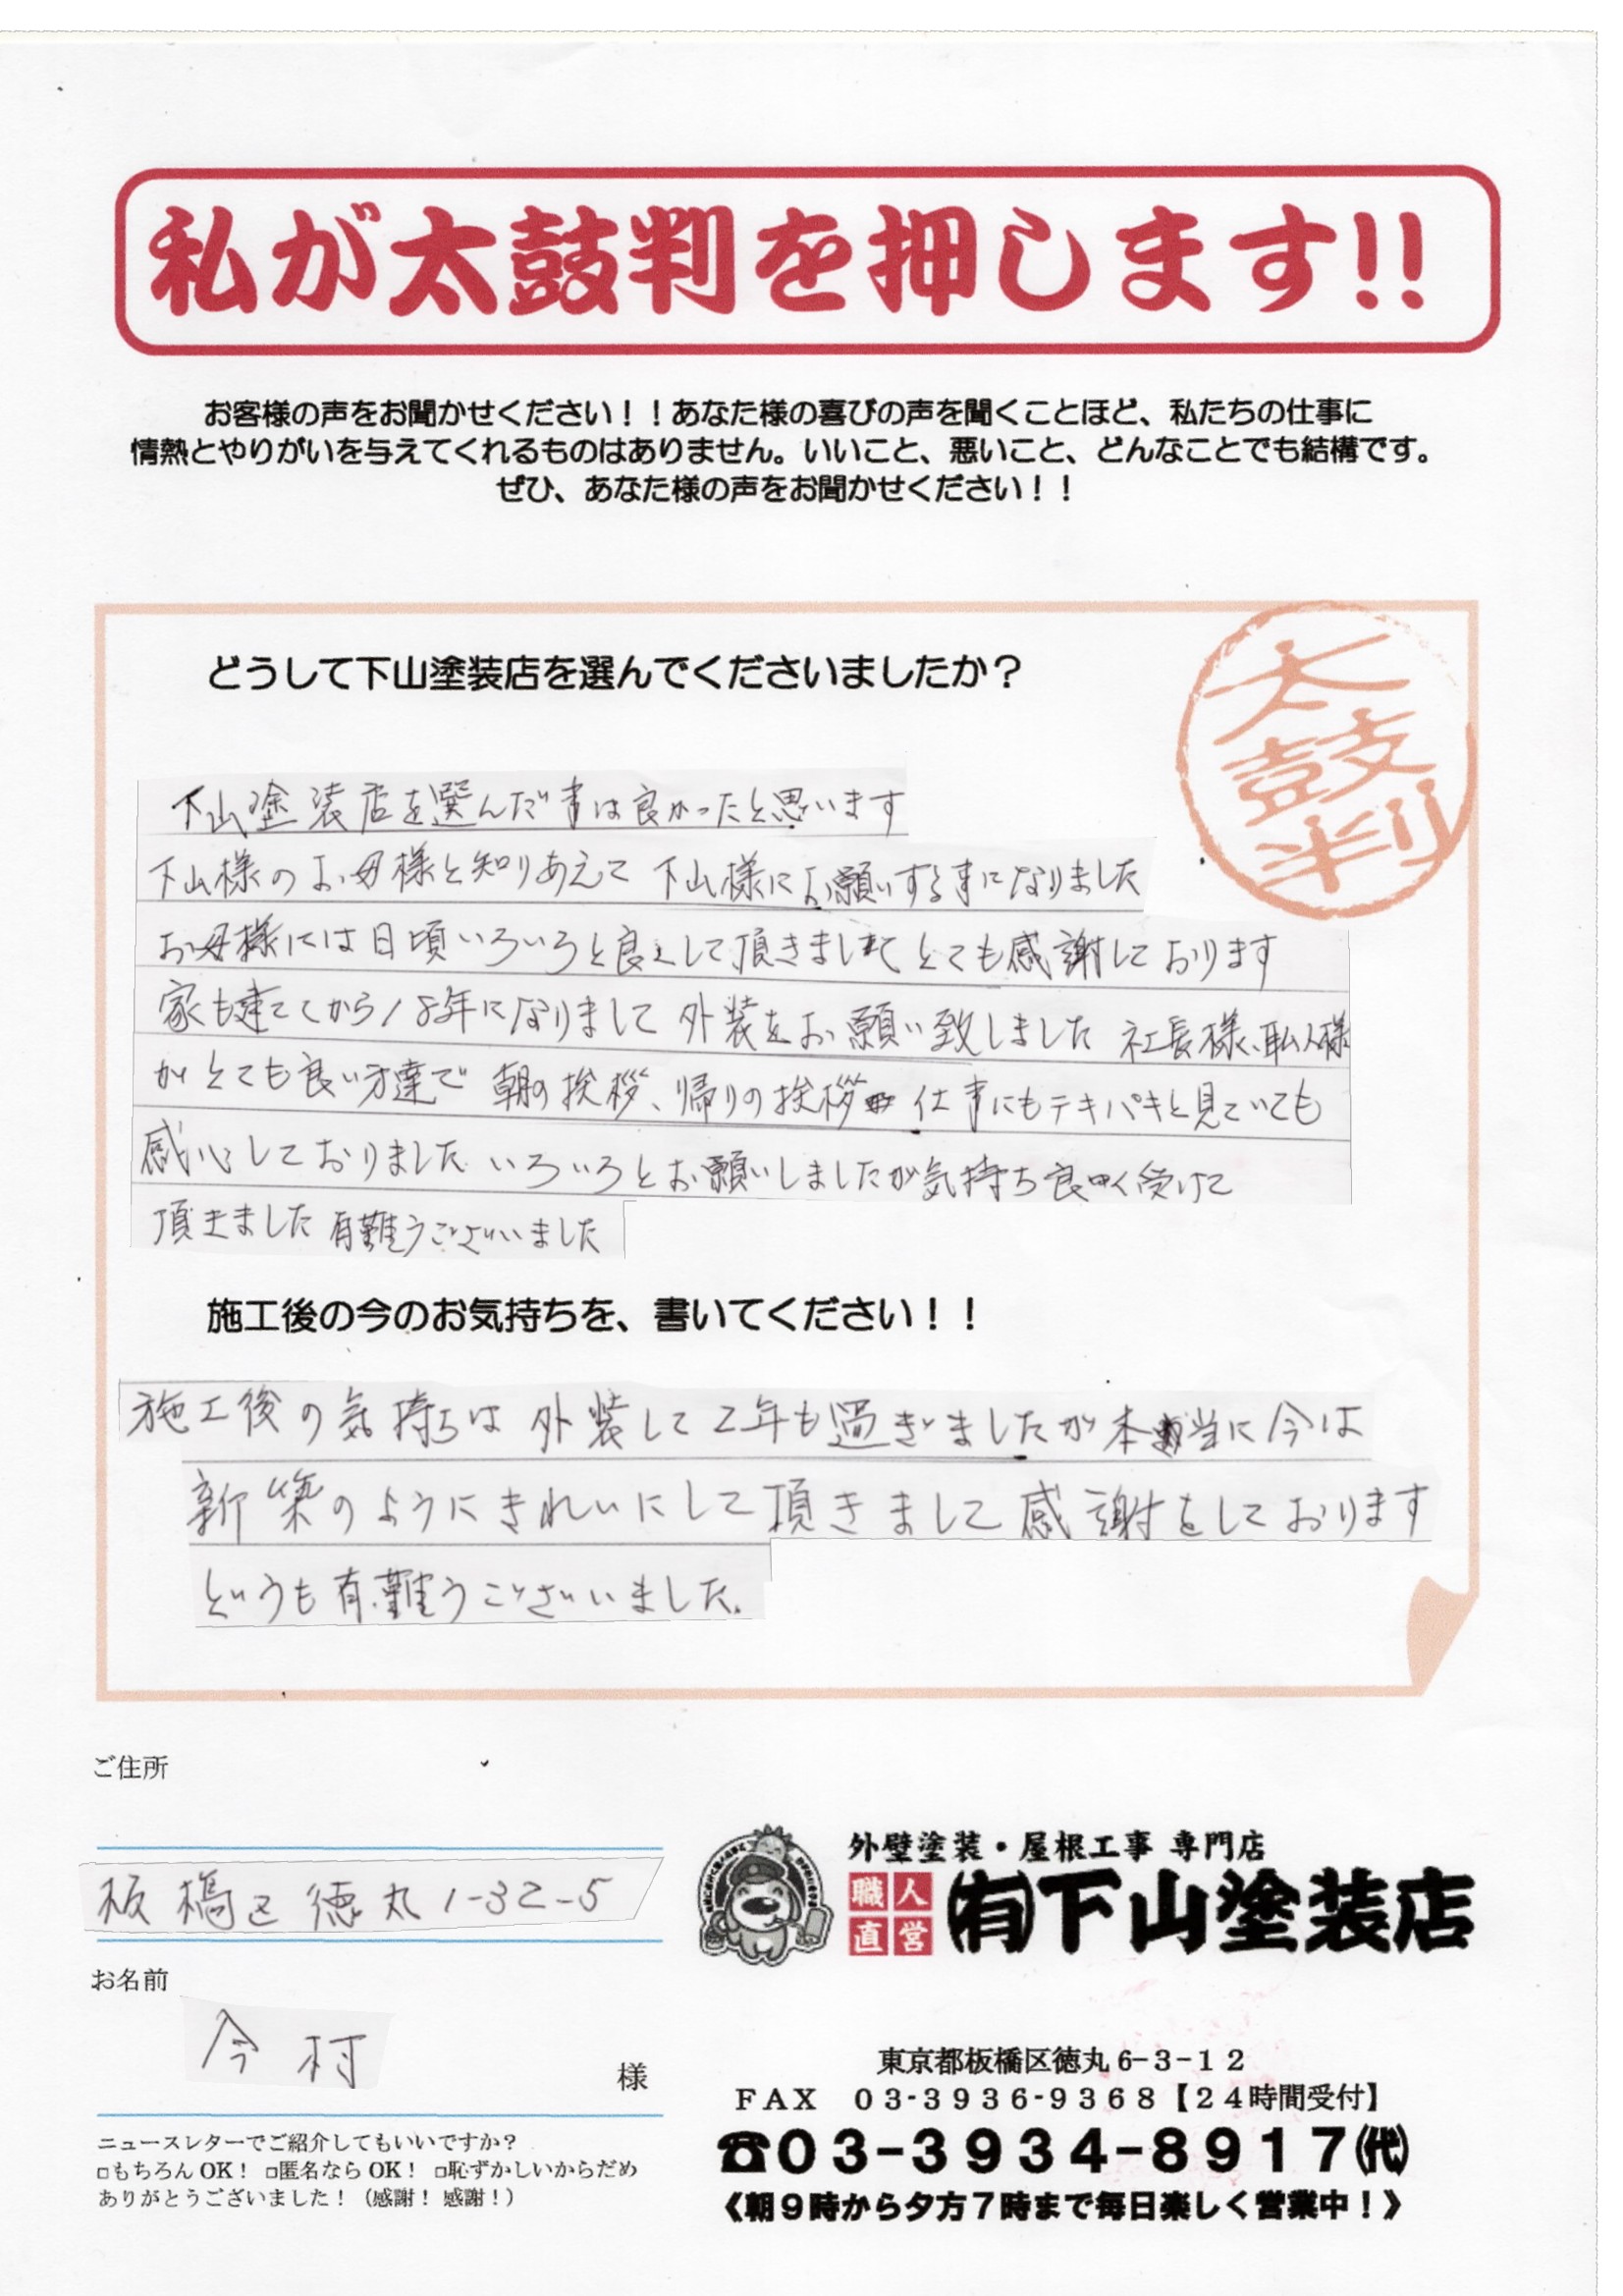 私が太鼓判を押します!!
お客様の声をお聞かせください！！あなた様の喜びの声を聞くことほど、私たちの仕事に
情熱とやりがいを与えてくれるものはありません。いいこと、悪いこと、どんなことでも結構です。
ぜひ、あなた様の声をお聞かせください！！
太鼓判
どうして下山塗装店を選んでくださいましたか？
下山塗装店を選んだ事は良かったと思います
下山様のお母様と知りあえて 下山様にお願いする事になりました
お母様には日頃いろいろと良くして頂きまして とても感謝しております
家も建ててから18年になりまして 外装をお願い致しました 社長様、職人様
がとても良い方達で 朝の挨拶、帰りの挨拶 仕事にもテキパキと見ていても
感心しておりました いろいろとお願いしましたが気持ち良く受けて
頂きました 有難うございいました
施工後の今のお気持ちを、書いてください！！
施工後の気持ちは 外装して2年も過ぎましたが本当に今は
新築のようにきれいにして頂きまして 感謝をしております
どうも有難うございいました.
ご住所
板橋区 徳丸 1-32-5
お名前
今村 様
ニュースレターでご紹介してもいいですか？
□もちろん OK！ □匿名なら OK！ □恥ずかしいからだめ
ありがとうございました！（感謝！感謝！）
外壁塗装・屋根工事 専門店
職人直営 ㈲下山塗装店
東京都板橋区徳丸 6-3-12
ＦＡＸ ０３-３９３６-９３６８【２４時間受付】
☎０３-３９３４-８９１７㈹
《朝９時から夕方７時まで毎日楽しく営業中！》